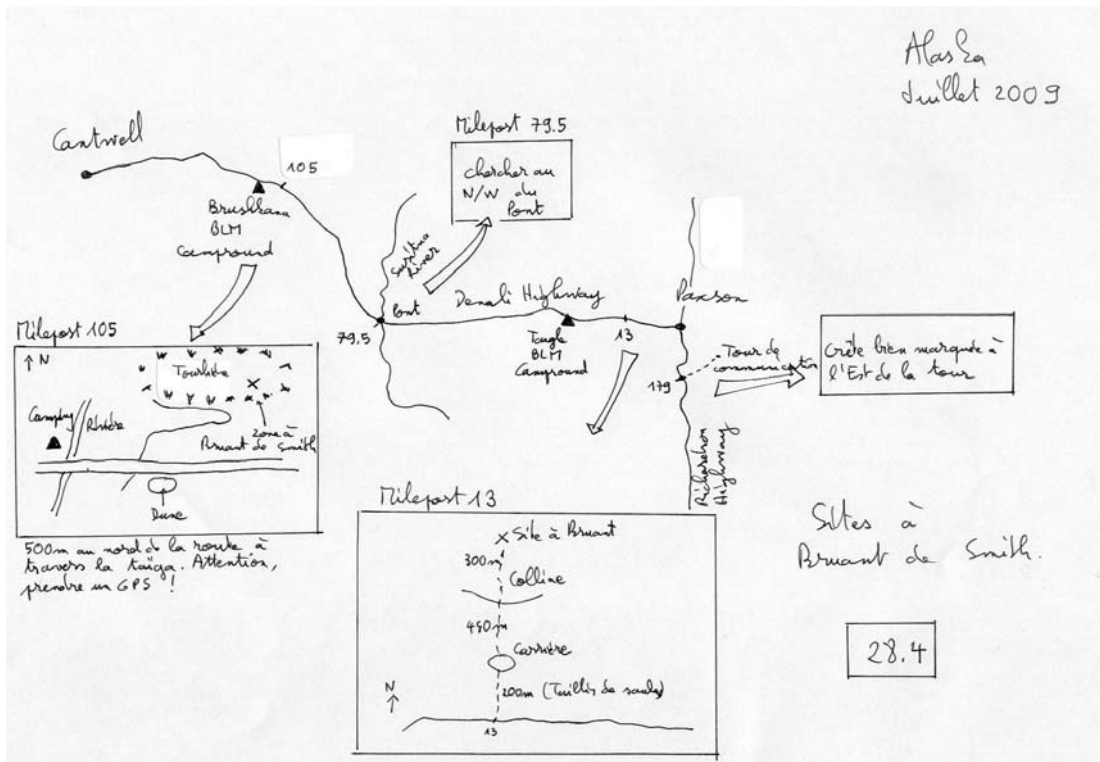 Alaska
Juillet 2009
Cantwell
105
Brushkana
BLM
Campround
Milepost 79.5
chercher au
N/W du
Pont
Susitna
River
Pont
79.5
Denali Highway
Tangle
BLM
Campround
13
Paxson
Tour de
communication
179
Richardson
Highway
Crête bien marquée à
l'Est de la tour
Milepost 105
N
Tourbière
Camping
Rivière
zone à
Bruant de Smith
Dune
500m au nord de la route à
travers la taïga. Attention,
prendre un GPS !
Milepost 13
Site à Bruant
300m
Colline
450m
Carrière
200m (Taillis de saules)
N
13
Sites à
Bruant de Smith.
28.4